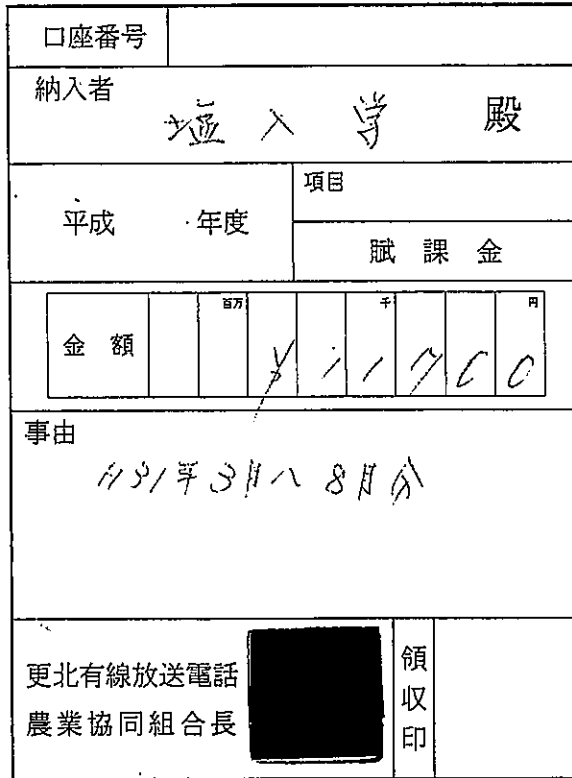 口座番号
納入者
塩入学 殿
平成 年度
項目
賦課金
百万 千 円
金額 ¥11700
事由
H31年3月〜8月分
更北有線放送電話
農業協同組合長
領収印